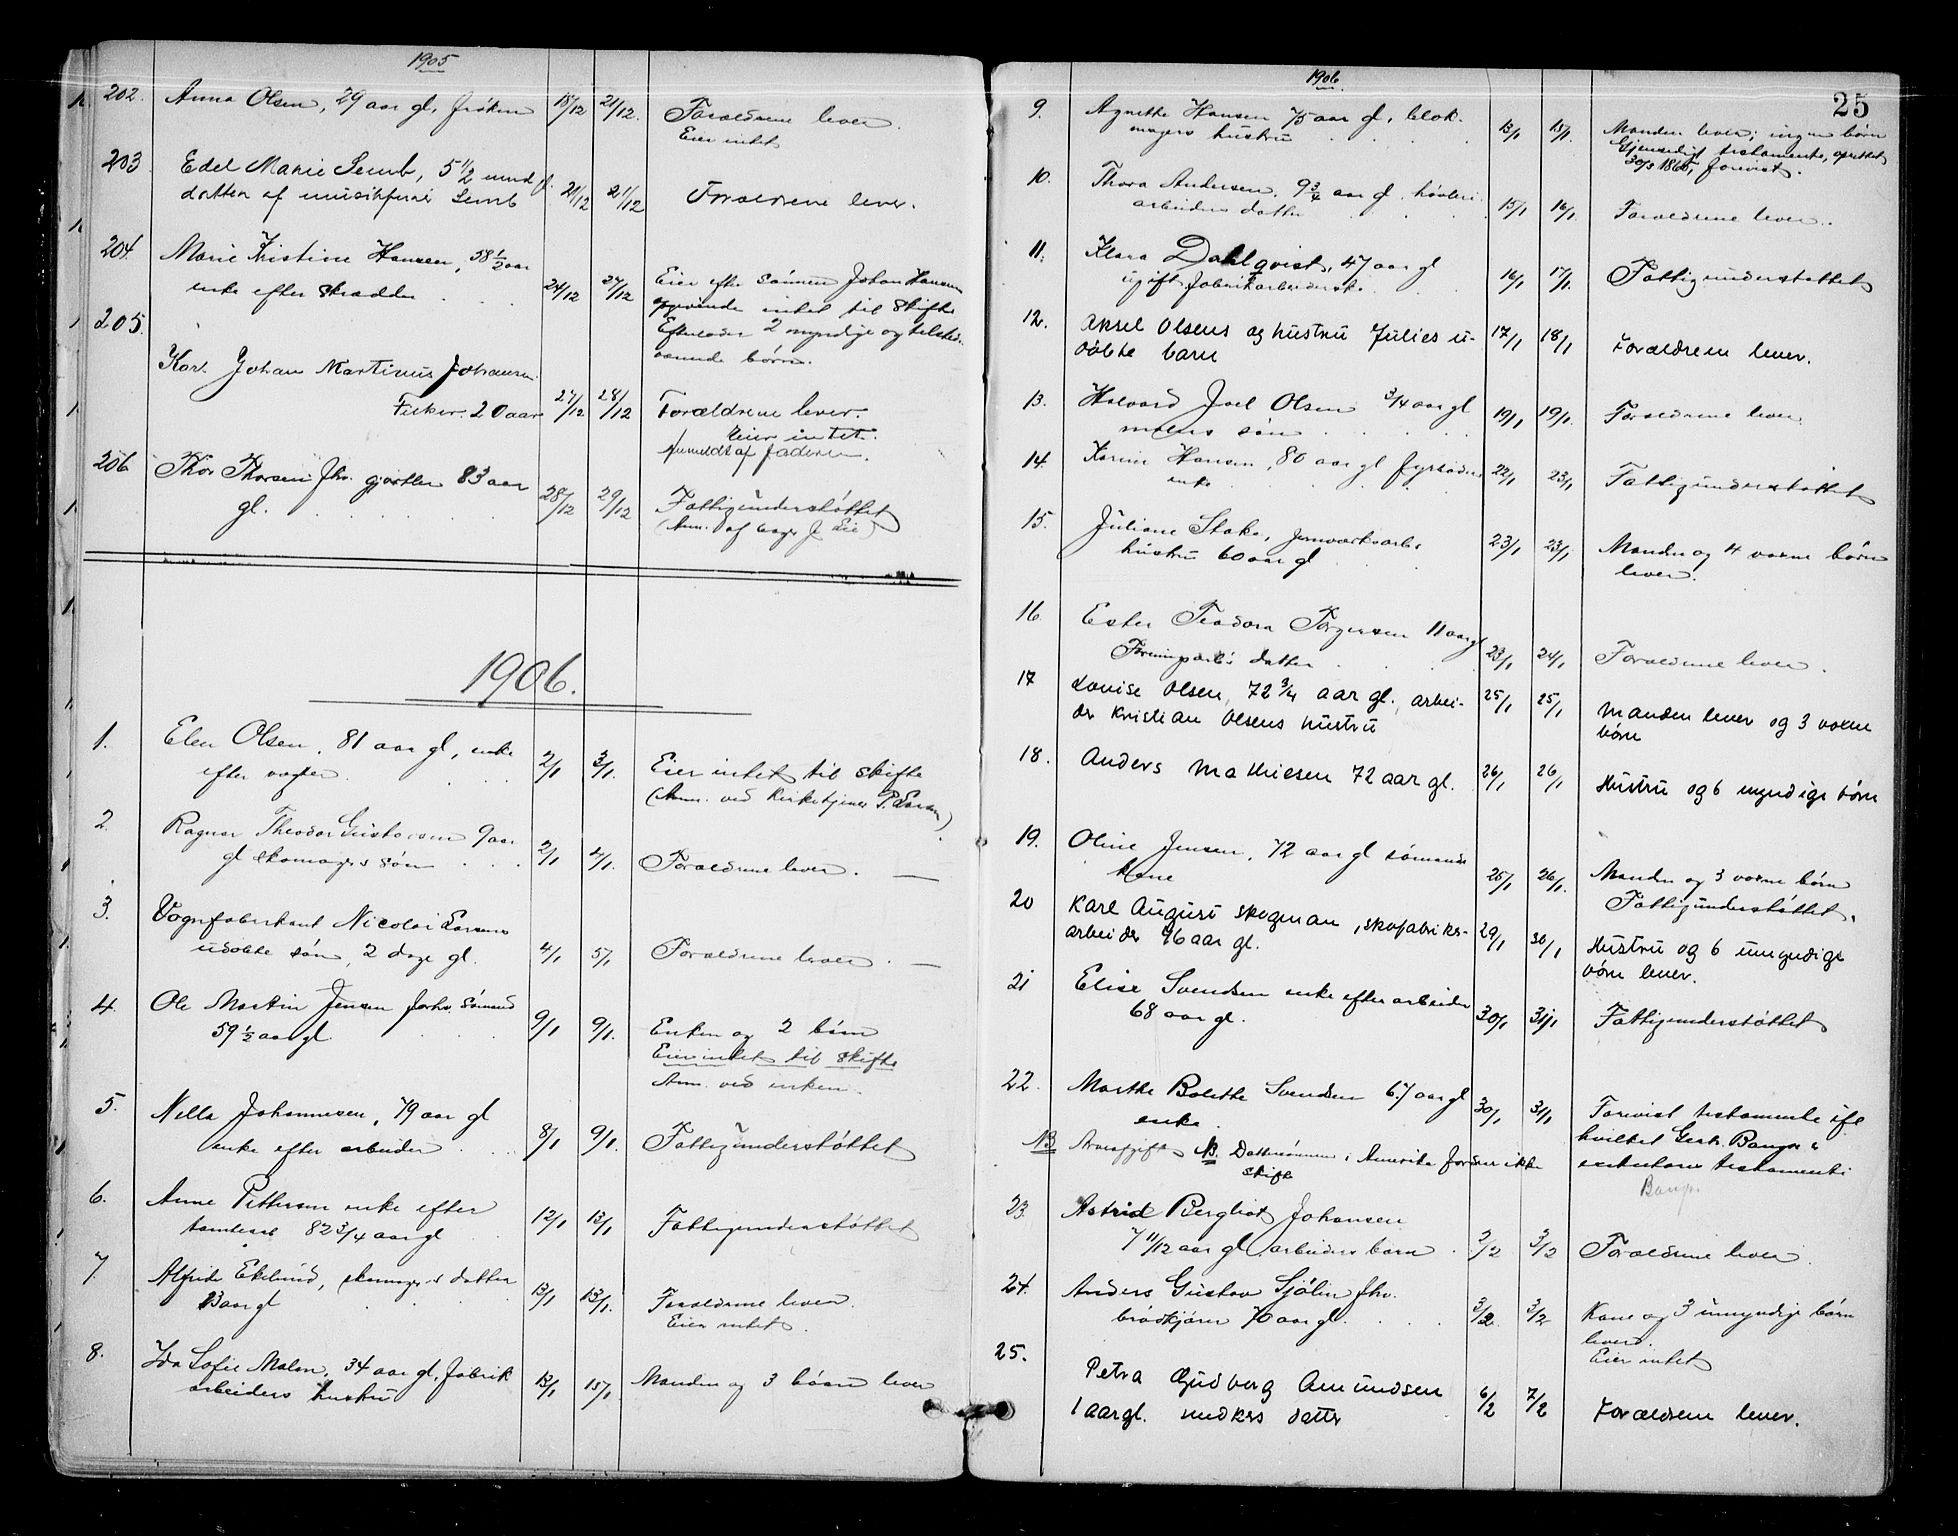 1905
202. Anna Olsen, 29 aar gl, frøken 18/12 21/12. Forældrene lever.
Eier intet
203 Edel Marie Semb, 5 1/2 mnd gl.
datter af musikfører Semb 21/12 21/12 Forældrene lever.
204. Marie Kristine Hansen, 58 1/2 aar
enke efter skrædder 24/12 27/12 Eier efter sønnen Johan Hansens
opgivende intet til skifte
205. Efterlader 2 myndige og tilstede-
værende børn.
Karl Johan Martinus Johansen
Fisker. 20 aar 27/12 28/12 Forældrene lever.
Eier intet.
Anmeldt af faderen.
206 Thor Thorsen fhv. gjørtler 83 aar
gl. 28/12 29/12 Fattigunderstøttet
(Anm. af J. Lie)
1906.
1. Elen Olsen, 81 aar gl, enke
efter vogter 2/1 3/1. Eier intet til skifte
(Anm. ved kirketjener P. Larsen)
2. Ragnar Theodor Gustavsen 9 aar
gl skomagers søn 2/1 4/1. Forældrene lever. —
3. Vognfabrikant Nicolai Larsens
udøbte søn, 2 dage gl. 4/1 5/1 Forældrene lever. —
4. Ole Martin Jensen forhv. sømand
59 1/2 aar gl. 9/1 9/1. Enken og 2 børn
Eier intet til skifte
Anm. ved enken
5. Nella Johannesen, 79 aar gl
enke efter arbeider 8/1 9/1. Fattigunderstøttet
6. Anne Pettersen enke efter
82 3/4 aar gl 12/1 13/1 Fattigunderstøttet
7 Alfride Ekelund, skomagers datter
13 aar gl 13/1 13/1. Forældrene lever.
Eier intet.
8. Ida Sofie Malm, 34 aar gl, fabrik
arbeiders hustru 13/1 15/1. Manden og 3 børn lever
1906.
25
9. Agnethe Hansen 75 aar gl, blok-
magers hustru 13/1 15/1. Manden lever; ingen børn
Gjensidigt testamente, oprettet
30/3 1865, forevist.
10. Thora Andersen, 9 3/4 aar gl, høvleri
arbeiders datter 15/1 16/1 Forældrene lever.
11. Klara Dahlqvist, 47 aar gl
ugift fabrikarbeiderske 16/1 17/1. Fattigunderstøttet
12. Aksel Olsens og hustru Julies u-
døbte barn 17/1 18/1 Forældrene lever.
13. Halvard Joel Olsen 3/4 aar gl
malers søn 19/1 19/1. Forældrene lever
14. Karine Hansen, 80 aar gl fyrbøders
enke 22/1 23/1 Fattigunderstøttet
15. Juliane Stake, jernværksarb.s
hustru 60 aar gl 23/1 23/1. Manden og 4 voxne børn
lever.
16. Ester Teodora Torgersen 11 aar gl
datter 23/1 24/1. Forældrene lever.
17 Lovise Olsen, 72 3/4 aar gl., arbei-
der Kristian Olsens hustru 25/1 25/1 Manden lever og 3 voxne
børn
18. Anders Mathiesen 72 aar gl. 26/1 26/1 Hustru og 6 myndige børn
19. Oline Jensen, 72 aar gl sømands
kone 25/1 26/1. Manden og 3 voxne børn
Fattigunderstøttet.
20 Karl August Skogman, skofabriks-
arbeider 46 aar gl. 29/1 30/1 Hustru og 6 umyndige
børn lever.
21 Elise Svendsen enke efter arbeider
68 aar gl. 30/1 31/1 Fattigunderstøttet
22. Marthe Bolette Svendsen 67 aar gl
enke. 30/1 31/1 Forevist testamente ifl
hvilket Bauge er
NB Arveafgift NB. Dattersønnen i Amerika fordrer ikke
skifte
executor testamenti
Bauge.
23. Astrid Bergliot Johansen
7 11/12 aar gl arbeiders barn 2/2 3/2 Forældrene lever.
24. Anders Gustav Sjølin fhv.
brødkjører 70 aar gl. 3/2. 3/2 Kone og 3 umyndige børn
lever.
Eier intet
25. Petra Gudborg Amundsen
1 aar gl. snedkers datter 6/2 7/2 Forældrene lever.